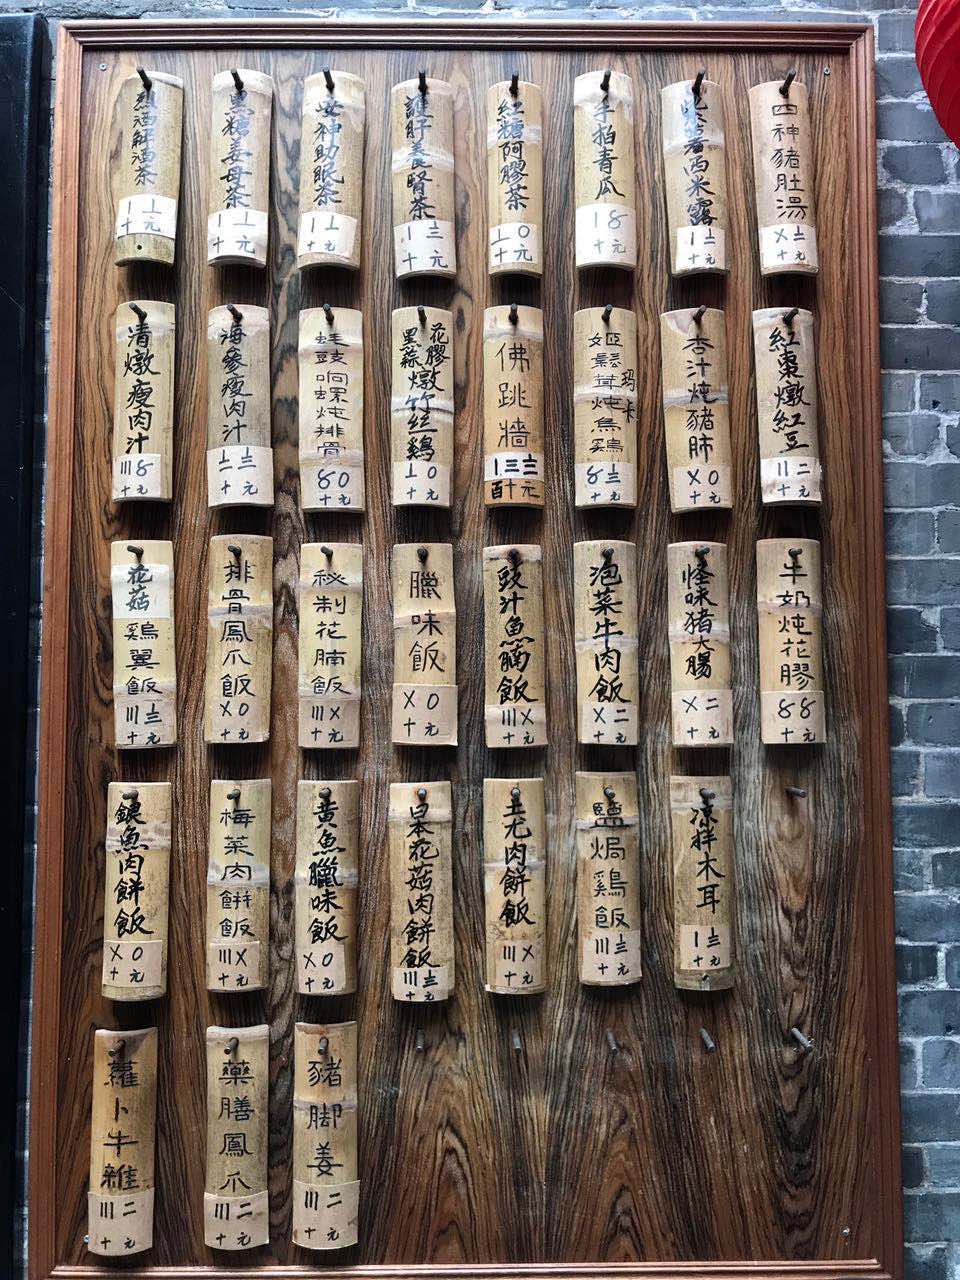 烈酒解酒茶
〡〦
十元
黑糖姜母茶
〡〦
十元
安神助眠茶
〡〦
十元
護肝養腎茶
〡〨
十元
紅糖阿膠茶
〦〇
十元
手拍青瓜
〡〥
十元
紫薯西米露
〡〧
十元
四神豬肚湯
〤〧
十元
清燉瘦肉汁
〣〥
十元
海參瘦肉汁
〦〨
十元
蚝豉响螺炖排骨
〥〇
十元
花膠
黑蒜燉竹丝鷄
〦〇
十元
佛跳牆
〡三〨
百十元
姬鬆茸炖烏鷄
瑪卡
〥〨
十元
杏汁炖豬肺
〤〇
十元
紅棗燉紅豆
〢二
十元
花菇鷄翼飯
〣〨
十元
排骨鳳爪飯
〤〇
十元
秘制花腩飯
〣〤
十元
臘味飯
〤〇
十元
豉汁魚腩飯
〣〤
十元
泡菜牛肉飯
〤二
十元
怪味猪大腸
〤二
十元
牛奶炖花膠
〥〥
十元
鯪魚肉餅飯
〤〇
十元
梅菜肉餅飯
〣〤
十元
黄魚臘味飯
〤〇
十元
日本花菇肉餅飯
〣〨
十元
土尤肉餅飯
〣〤
十元
鹽焗鷄飯
〣〨
十元
凉拌木耳
〡〨
十元
蘿卜牛雜
〣二
十元
藥膳鳳爪
〣二
十元
豬脚姜
〣二
十元